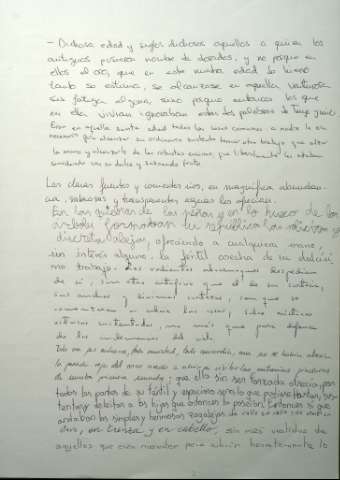 - Dichosa edad y siglos dichosos aquellos a quien los
antiguos pusieron nombre de dorados, y no porque en
ellos el oro, que en esta nuestra edad de hierro
tanto se estima, se alcanzase en aquella venturosa
sin fatiga alguna, sino porque entonces los que
en ella vivían ignoraban estas dos palabras de tuyo y mío.
Eran en aquella santa edad todas las cosas comunes; a nadie le era
necesario para alcanzar su ordinario sustento tomar otro trabajo que alzar
la mano y alcanzarle de las robustas encinas, que liberalmente les estaban
convidando con su dulce y sazonado fruto.
Las claras fuentes y corrientes ríos, en magnífica abundan-
cia, sabrosas y transparentes aguas les ofrecían.
En las quiebras de las peñas y en lo hueco de los
árboles formaban su república las solícitas y
discretas abejas, ofreciendo a cualquiera mano,
sin interés alguno, la fértil cosecha de su dulcísi-
mo trabajo. Los valientes alcornoques despedían
de sí, sin otro artificio que el de su cortesía,
sus anchas y livianas cortezas, con que se
comenzaron a cubrir las casas, sobre rústicas
estacas sustentadas, no más que para defensa
de las inclemencias del cielo.
Todo era paz entonces, todo amistad, todo concordia; aún no se había atrevido
la pesada reja del corvo arado a abrir ni visitar las entrañas piadosas
de nuestra primera madre; que ella sin ser forzada ofrecía, por
todas las partes de su fértil y espacioso seno, lo que pudiese hartar, sus-
tentar y deleitar a los hijos que entonces la poseían. Entonces sí que
andaban las simples y hermosas zagalejas de valle en valle y de otero en
otero, en trenza y en cabello, sin más vestidos de
aquellos que eran menester para cubrir honestamente lo